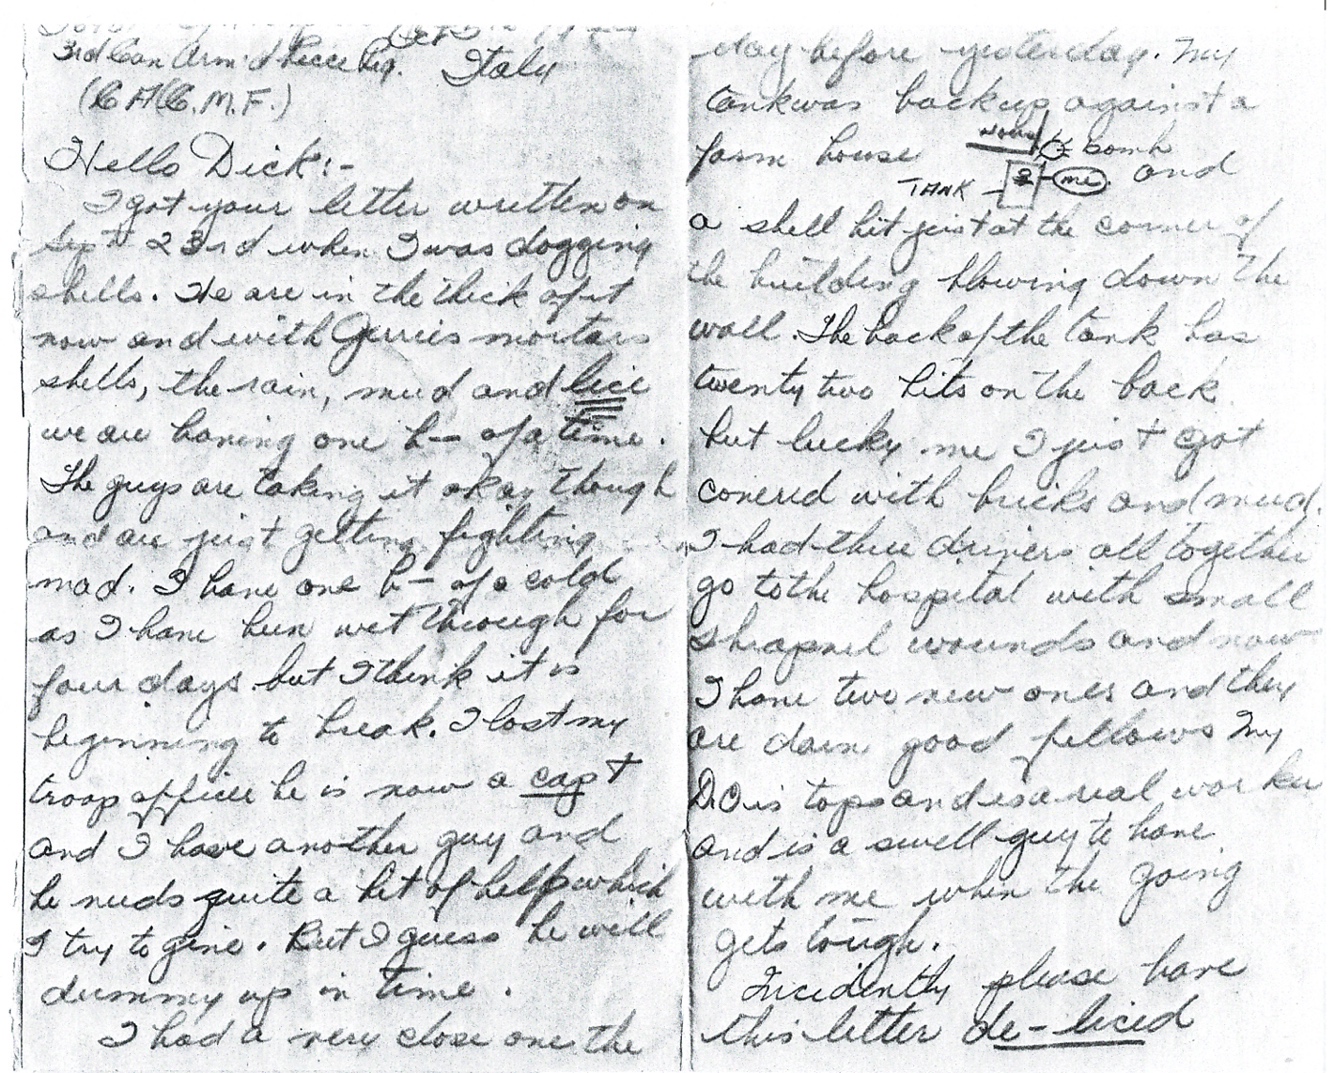 Oct
3rd Can Arm'd Recce Reg. Italy
(C.A.C.M.F.)
Hello Dick:-
I got your letter written on
Sept 23rd when I was dogging
shells. We are in the thick of it
now and with Gerries mortars
shells, the rain, mud and lice
we are having one h— of a time.
The guys are taking it okay though
and are just getting fighting
mad. I have one h— of a cold
as I have been wet through for
four days but I think it is
beginning to break. I lost my
troop officer he is now a capt
and I have another guy and
he needs quite a bit of help which
I try to give. But I guess he will
dummy up in time.
I had a very close one the
day before yesterday. My
tank was back up against a
farm house
bomb
TANK me and
a shell hit just at the corner of
the building blowing down the
wall. The back of the tank has
twenty two hits on the back
but lucky me I just got
covered with bricks and mud.
I had three drivers all together
go to the hospital with small
shrapnel wounds and now
I have two new ones and they
are darn good fellows My
is tops and is a real worker
and is a swell guy to have
with me when the going
gets tough.
Incidently please have
this letter de-liced